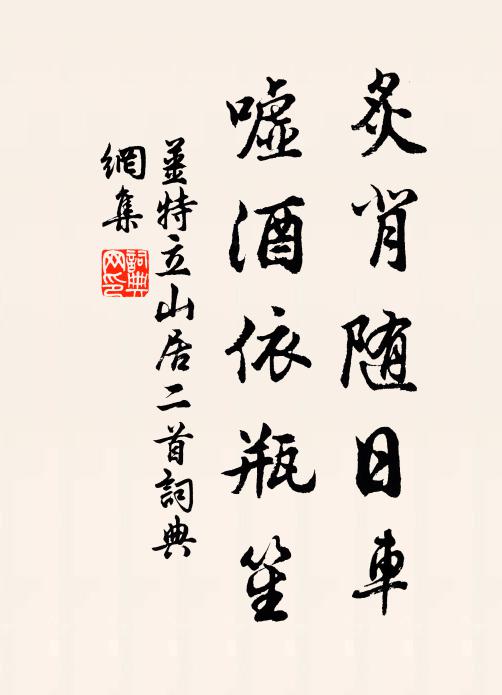 炙背随日車
嘘酒依瓶笙
薑特立山居二首詞典
網集
詞典
网印